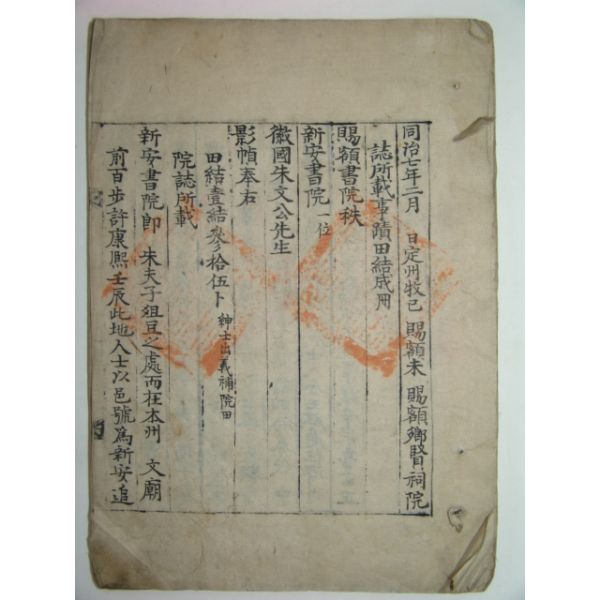 同治七年二月 日定州牧已 賜額未 賜額鄉賢祠院
誌所載事蹟田結成冊
賜額書院秩
新安書院 一位
徽國朱文公先生
影幀奉右
田結壹結參拾伍卜 紳士出義補院田
院誌所載
新安書院卽 朱夫子俎豆之處而在本州 文廟
前百步許康熙壬辰此地人士以邑號爲新安追